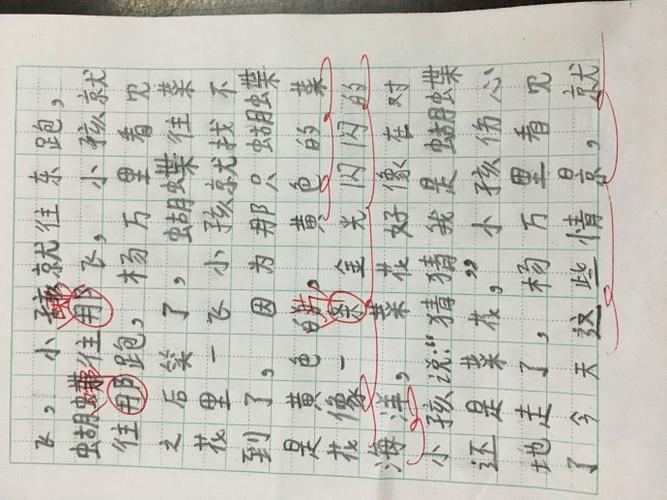 飞，小孩就往东跑，
蝴蝶往那飞，小孩就
往那跑，杨万里看见
之后笑了，蝴蝶往菜
花里一飞，小孩就找不
到了，因为那只蝴蝶
是黄色的，黄色的菜
花像一条金光闪闪的
海洋，菜花好像在对
小孩说：“猜猜我是蝴蝶
还是菜花，”小孩伤心
地走了，杨万里看见
了今天这些情景，就